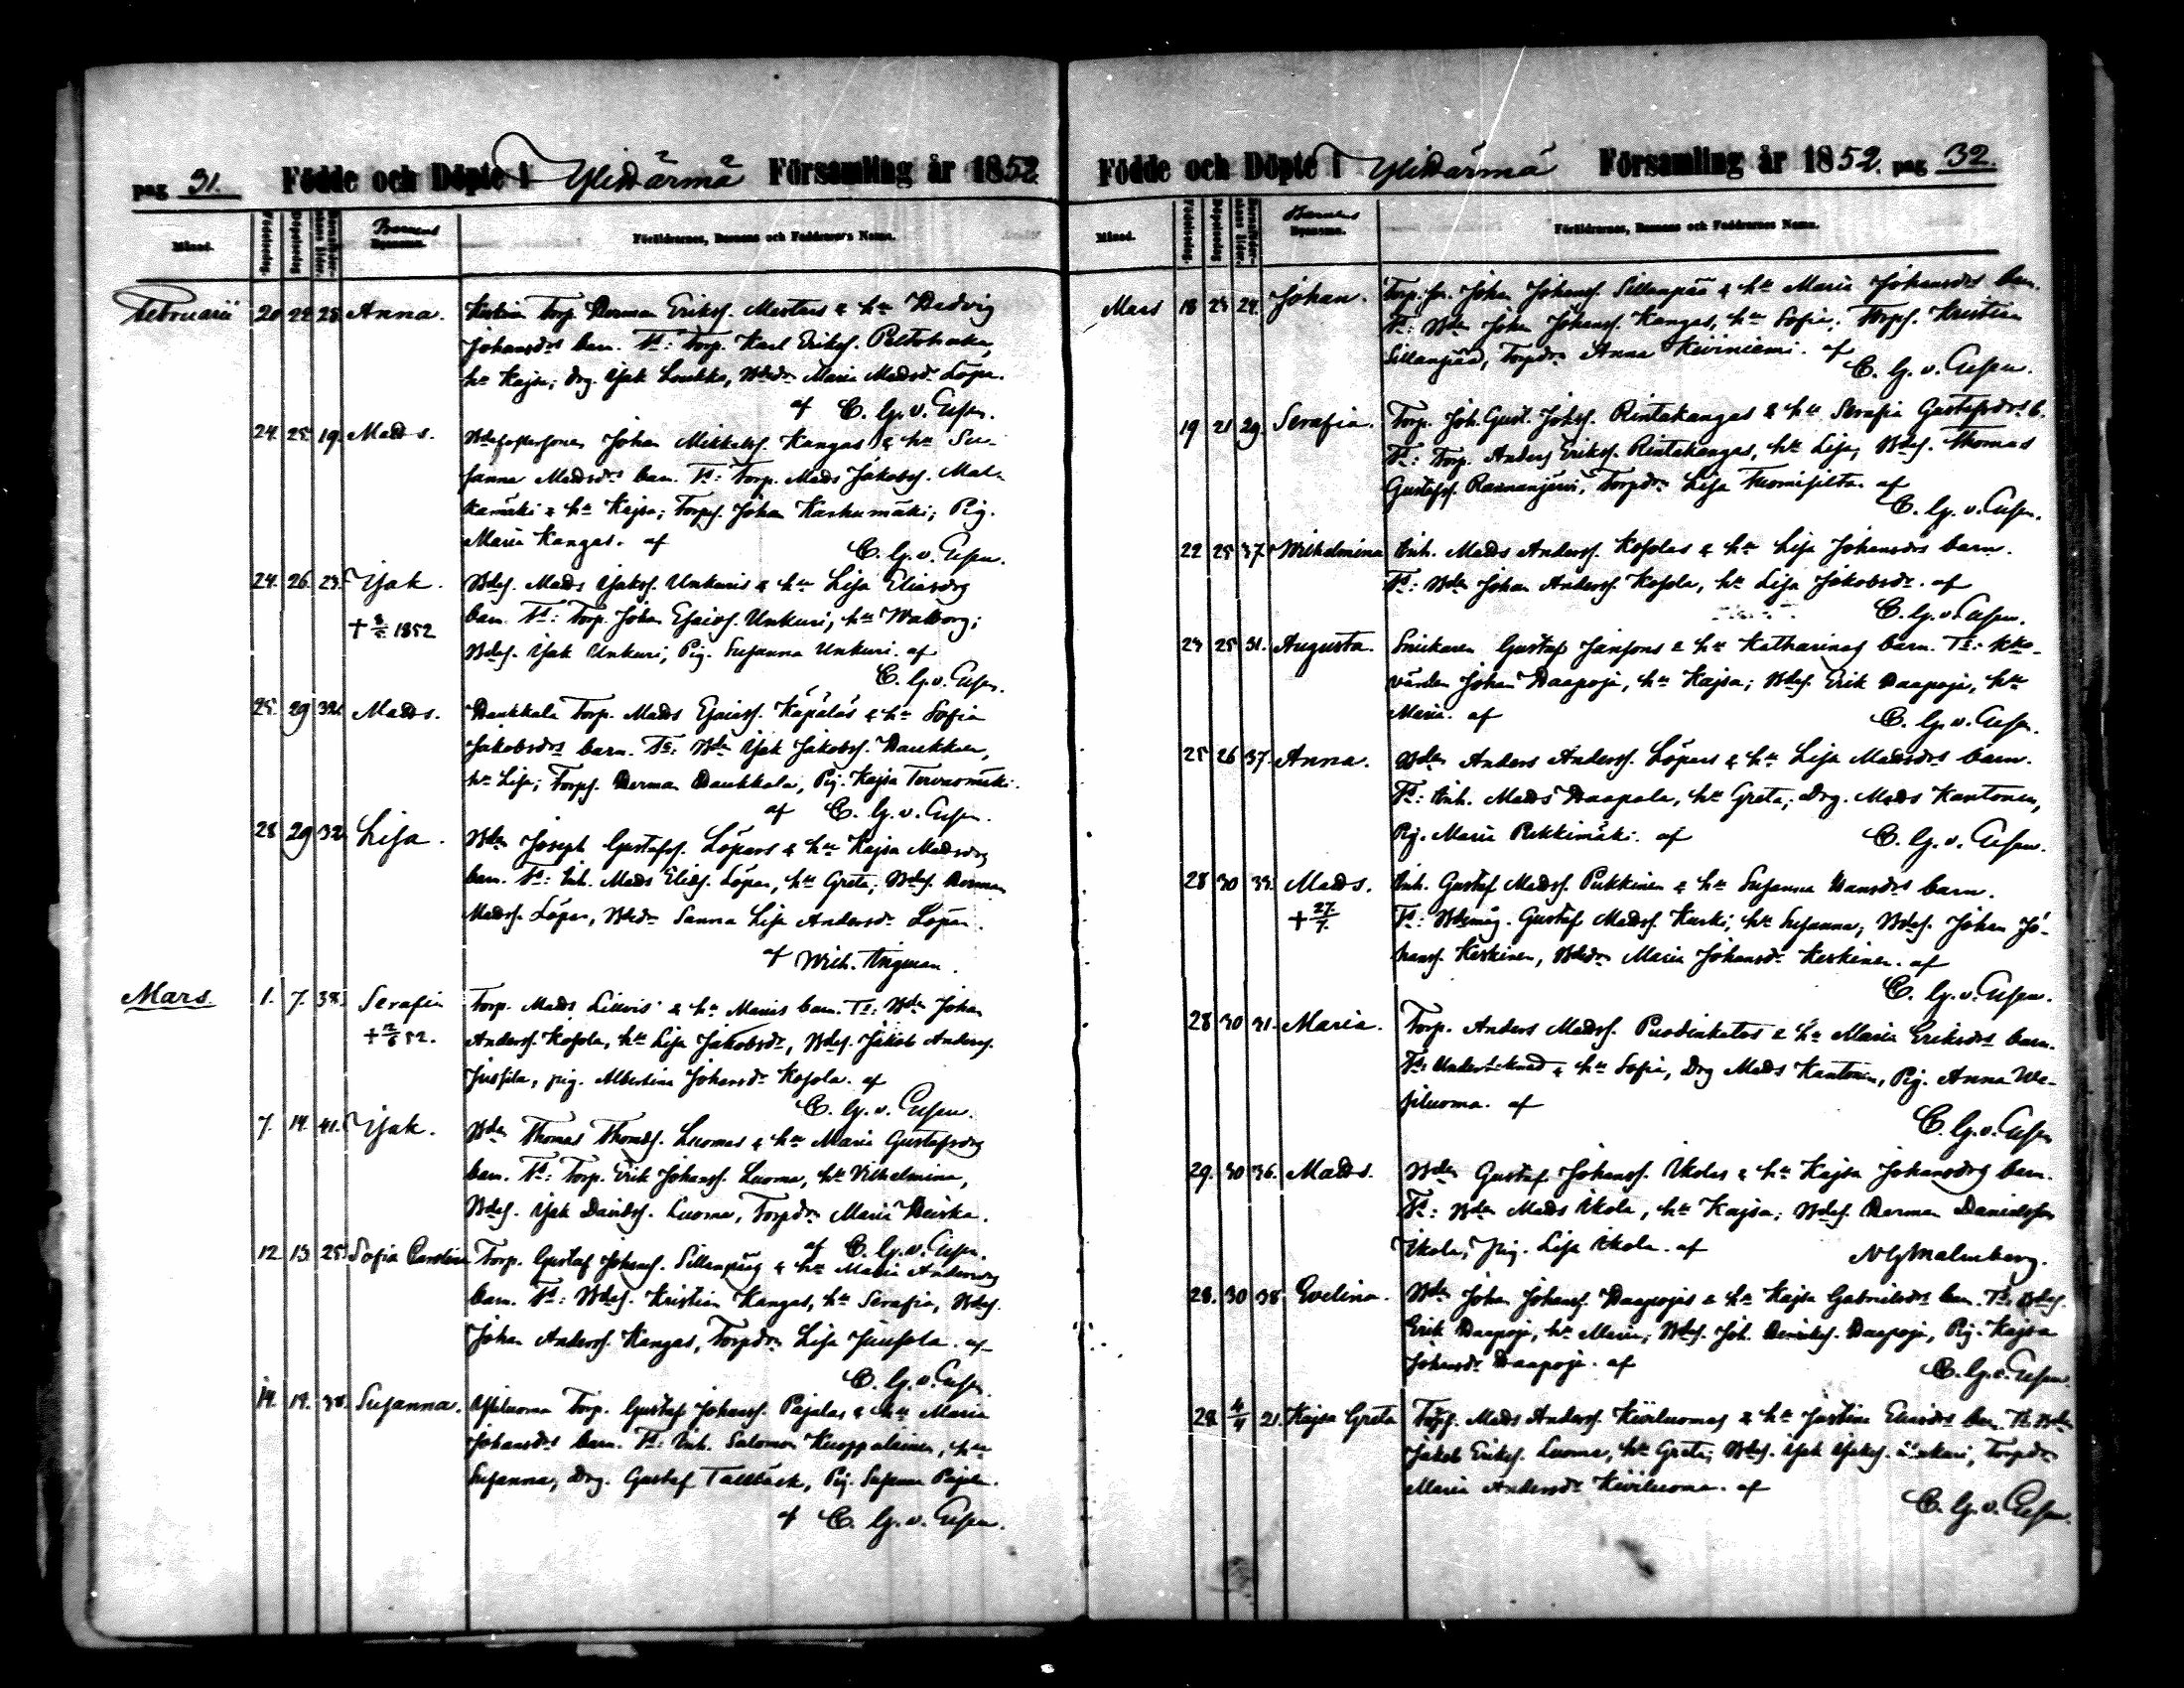 pag 31. Födde och Döpte i Ylihärmä Församling år 1852.
Månad. Födelsedag. Döpelsedag. Barnens Föräldrarnes, Barnens och Faddrarnes Namn.
Februarii 20 22 28. Anna. Torp. Herman Eriks. & h. Hedvig
Johansdrs barn. Ts: Torp. Karl Eriks.
h. Kajsa; drg. Isak Loukko, Maria Madsdr Löpa.
af C. G. v. Essen.
24. 25. 19. Mads. Johan Mikkels. Kangas & h. Su-
sanna Madsdrs barn. Ts: Torp. Mads Jakobs. Mat-
kamäki & h. Kajsa; Torps. Johan Karhumäki; Pig.
Maria Kangas. af C. G. v. Essen.
24. 26. 23. Isak. Bdes. Mads Isaks. Unkuris & h. Lisa Eliasdrs
† 1852 barn. Ts: Torp. Johan Esaias. Unkuri, h. Walborg;
Bdes. Isak Unkuri, Pig. Susanna Unkuri. af
C. G. v. Essen.
25. 29 32. Mads. Haukkala Torp. Mads Esaias. Käpäläs & h. Sofia
Jakobsdrs barn. Ts: Bden Isak Jakobs.
h. Lisa; Torps. Herman Haukkala, Pig. Kajsa
af C. G. v. Essen.
28 29 32. Lisa. Bden Joseph Gustafs. Löpars & h. Kajsa Madsdrs
barn. Ts: Inh. Mads Elids. Löpar, h. Greta; Bdes. Herman
Madss. Löpar, Bdedr Sanna Lisa Andersdr Löpar.
af Wilh. Ingman.
Mars. 1. 7. 38. Serafia Torp. Mads & h. Marias barn. Ts: Bden Johan
† 52. Anders. Kosola, h. Lisa Jakobsdr, Bdes. Jakob Anders.
Jussila, pig. Albertina Johansdr Kosola. af
C. G. v. Essen.
7. 14. 41. Isak. Bden Thomas Thoms. Luomas & h. Maria Gustafsdrs
barn. Ts: Torp. Erik Johans. Luoma, h. Vilhelmina,
Bdes. Isak Davids. Luoma, Torpdr Maria
af C. G. v. Essen.
12 13. 25. Sofia Carolina Torp. Gustaf Johans. Sillanpää & h. Maria Andersdrs
barn. Ts: Bdes. Kristian Kangas, h. Serafia, Bdes.
Johan Anders. Kangas, Torpdr Lisa Junsola. af
C. G. v. Essen.
14. 14. 38. Susanna. Torp. Gustaf Johans. Pajalas & h. Maria
Johansdrs barn. Ts: Inh. Salomon Kuoppalainen, h.
Susanna, Drg. Gustaf Tallbäck, Pig. Susanna Pajala.
af C. G. v. Essen.
Födde och Döpte i Ylihärmä Församling år 1852. pag 32.
Månad. Födelsedag. Döpelsedag. Barnens Föräldrarnes, Barnens och Faddrarnes Namn.
Mars 18 25 24. Johan. Johan Johans. Sillanpää & h. Maria Johansdrs barn.
Ts: Bden Johan Johans. Kangas, h. Sofia; Torps. Kristian
Sillanpää, Torpdr Anna Kiviniemi. af
C. G. v. Essen.
19 21 29. Serafia. Torp. Joh. Gust. Johs. Rintakangas & h. Serafia Gustafsdrs b.
Ts: Torp. Anders Eriks. Rintakangas, h. Lisa; Bdes. Thomas
Gustafs. Torpdr Lisa Tuomisilta. af
C. G. v. Essen.
22 25 37. Wilhelmina Inh. Mads Anders. Kosolas & h. Lisa Johansdrs barn.
Ts: Bden Johan Anders. Kosola, h. Lisa Jakobsdr. af
C. G. v. Essen.
23 25 31. Augusta. Snickaren Gustaf Jansons & h. Katharinas barn. Ts:
värden Johan Haapoja, h. Kajsa; Bdes. Erik Haapoja, h.
Maria. af C. G. v. Essen.
25 26 37. Anna. Bden Anders Anders. Löpars & h. Lisa Madsdrs barn.
Ts: Inh. Mads Haapala, h. Greta; Drg. Mads Kantonen,
Pig. Maria af C. G. v. Essen.
28 30 33. Mads. Inh. Gustaf Mads. Pukkinen & h. Susanna Hansdrs barn.
† 27/7. Ts: Bdemåg. Gustaf Mads. Kaski, h. Susanna; Bdes. Johan Jo-
hans. Keskinen, Bdedr Maria Johansdr Keskinen. af
C. G. v. Essen.
28 30 31. Maria. Torp. Anders Mads. Puodinkatos & h. Maria Eriksdrs barn.
Ts: Undertecknad & h. Sofia, Drg Mads Kantonen, Pig. Anna We-
siluoma. af
C. G. v. Essen
29. 30 36. Mads. Bden Gustaf Johans. Ikolas & h. Kajsa Johansdrs barn.
Ts: Bden Mads Ikola, h. Kajsa; Bdes. Herman Danielsson
Ikola, Pig. Lisa Ikola. af N G Malmberg.
28. 30 38. Evelina. Bden Johan Johans. Haapojas & h. Kajsa Gabrielsdrs barn. Ts: Bdes.
Erik Haapoja, h. Maria; Bdes. Joh. Henriks. Haapoja, Pig. Kajsa
Johansdr Haapoja. af C. G. v. Essen.
28. 4/4 21. Kajsa Greta Torps. Mads Anders. Kiviluomas & h. Justina Eliasdrs barn. Ts: Bden
Jakob Eriks. Luoma, h. Greta; Bdes. Isak Isaks. Torpdr
Maria Andersdr Kiviluoma. af
C. G. v. Essen.